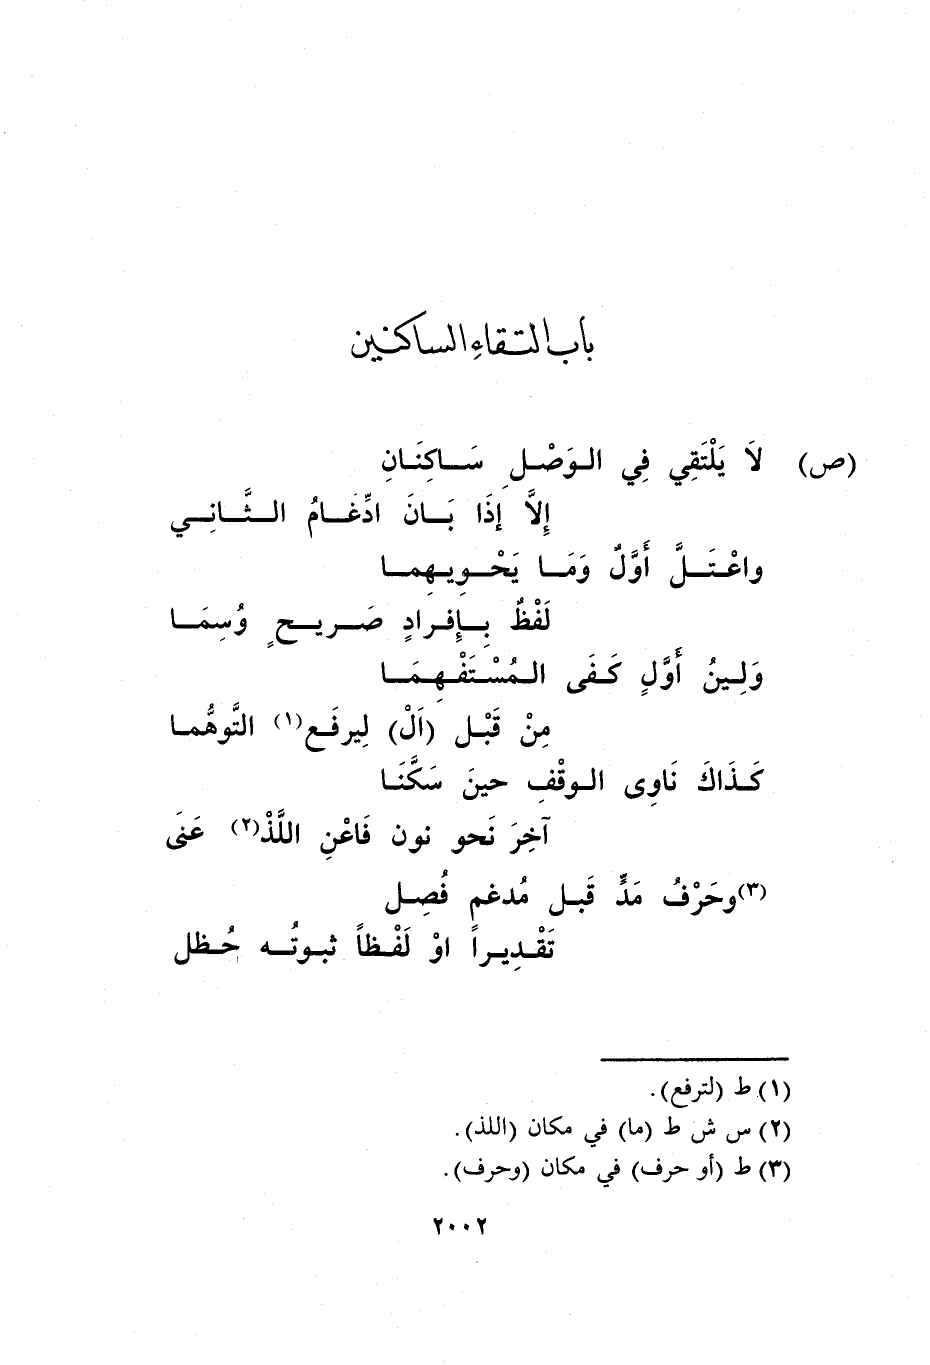 باب التقاء الساكنين
(ص) لاَ يَلْتَقِي فِي الوَصْلِ سَاكِنَانِ
إِلاَّ إِذَا بَانَ ادِّغَامُ الثَّانِي
واعْتَلَّ أَوَّلٌ وَمَا يَحْوِيهِما
لَفْظٌ بِإِفرادٍ صَريحٍ وُسِمَا
وَلِينُ أَوَّلٍ كَفَى المُسْتَفْهِمَا
مِنْ قَبْل (اَلْ) لِيرفَع(١) التَّوهُّما
كَذَاكَ نَاوِى الوقْفِ حينَ سَكَّنَا
آخِرَ نَحو نون فَاعْنِ اللَّذْ(٢) عَنَى
(٣)وحَرْفُ مَدٍّ قَبل مُدغم فُصِل
تَقْدِيراً اوْ لَفْظاً ثبوتُه حُظل
(١) ط (لترفع).
(٢) س ش ط (ما) في مكان (اللذ).
(٣) ط (أو حرف) في مكان (وحرف).
٢٠٠٢